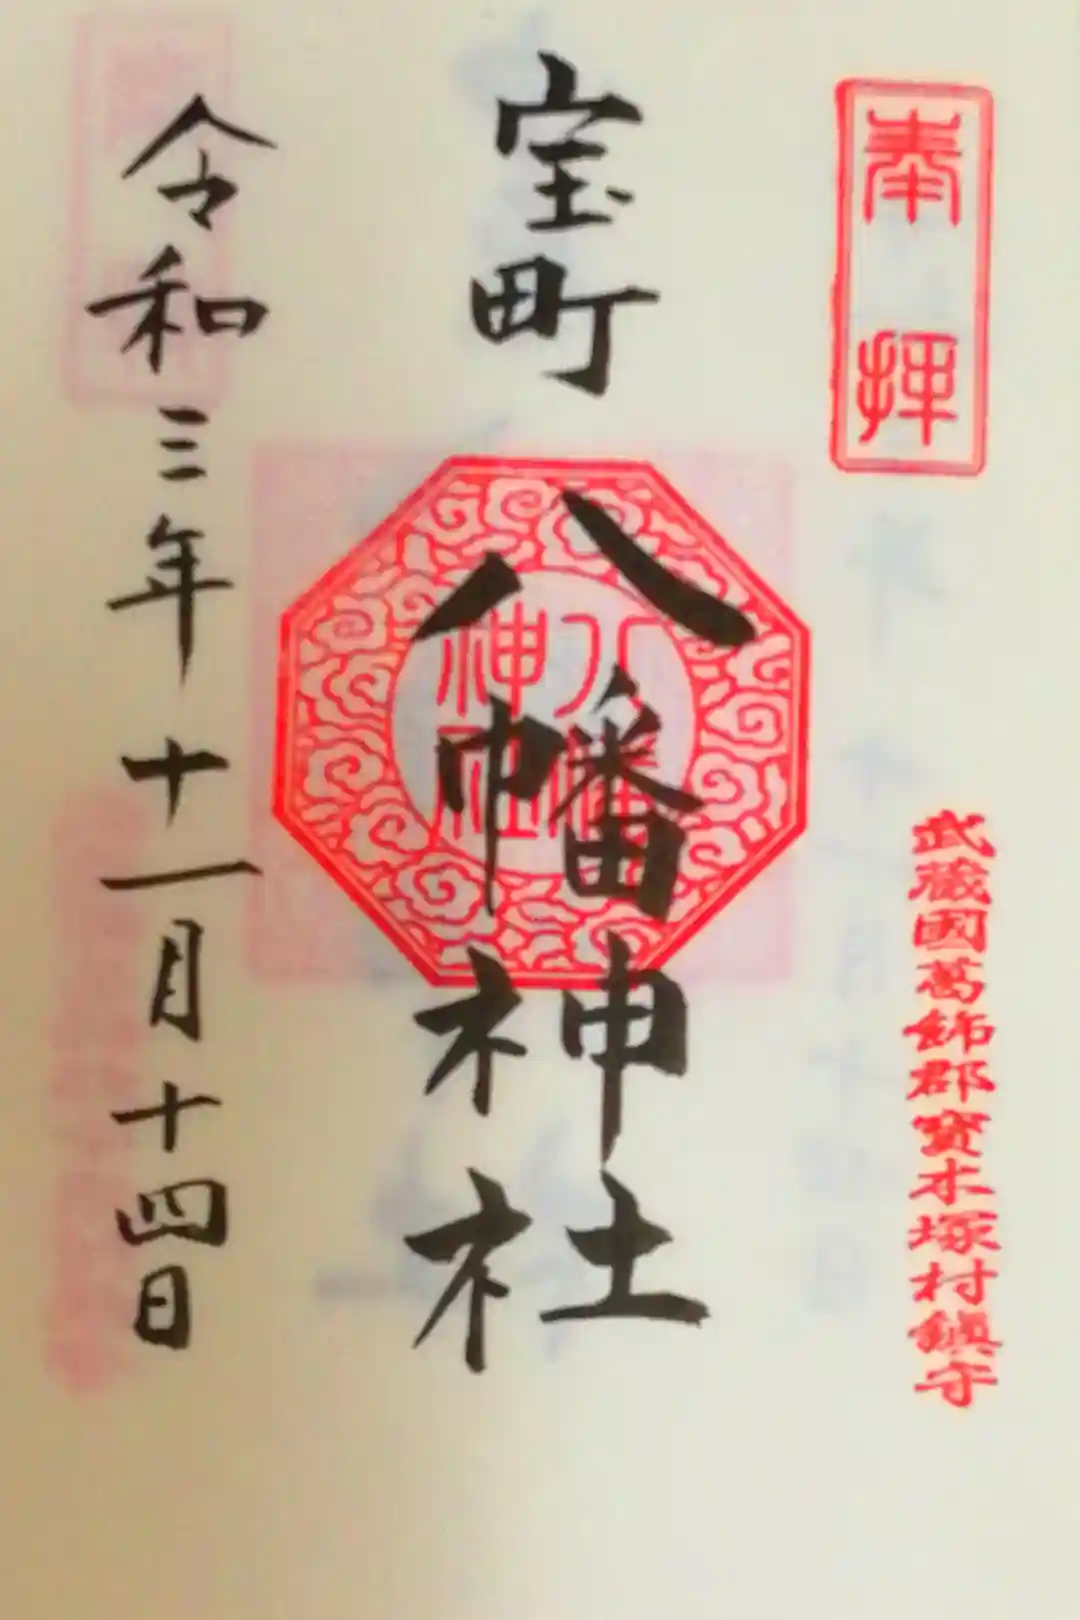 奉拝
武蔵國葛飾郡寳木塚村鎮守
宝町
八幡神社
八幡
神社
令和三年十一月十四日